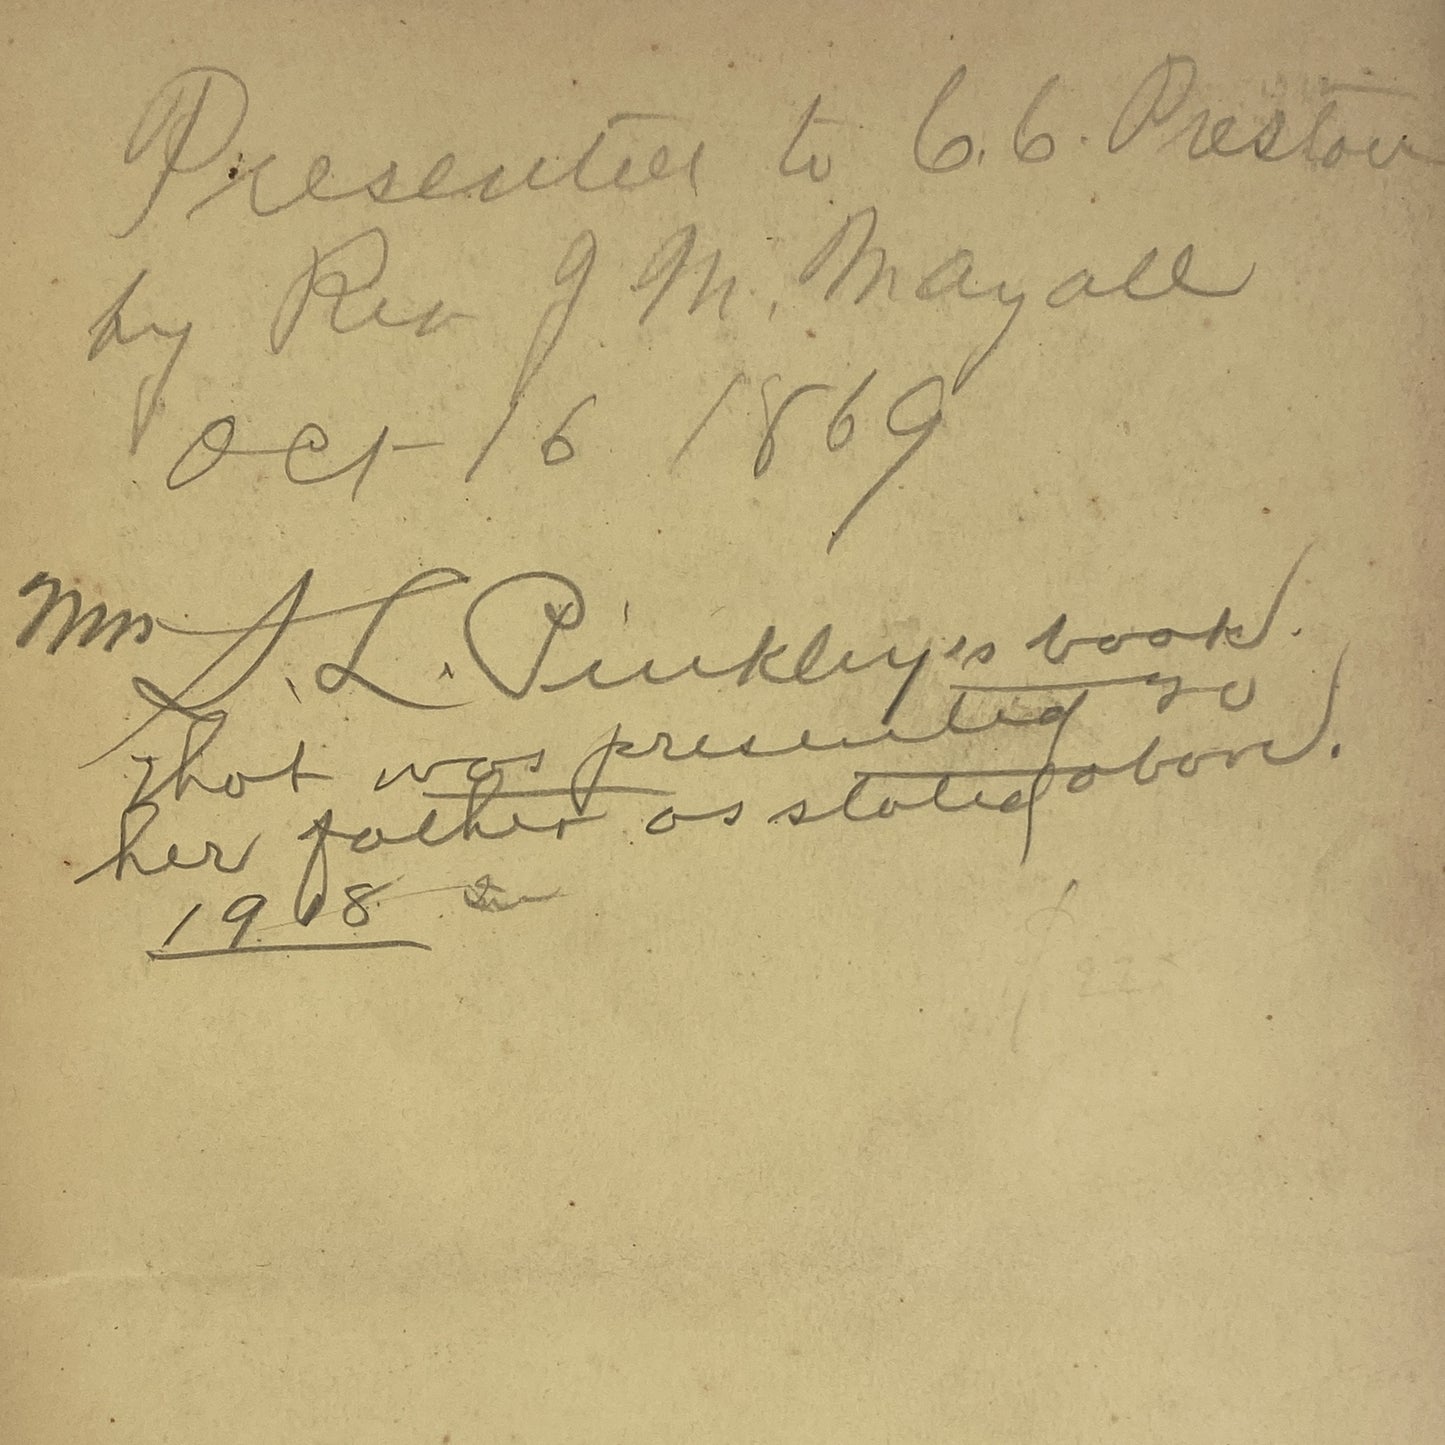 Presented to C. C. Preston
by Rev J M. Mayall
Oct 16 1869
Mrs S. L. Pinkley's book.
that was presented to
her father as stated above.
1918